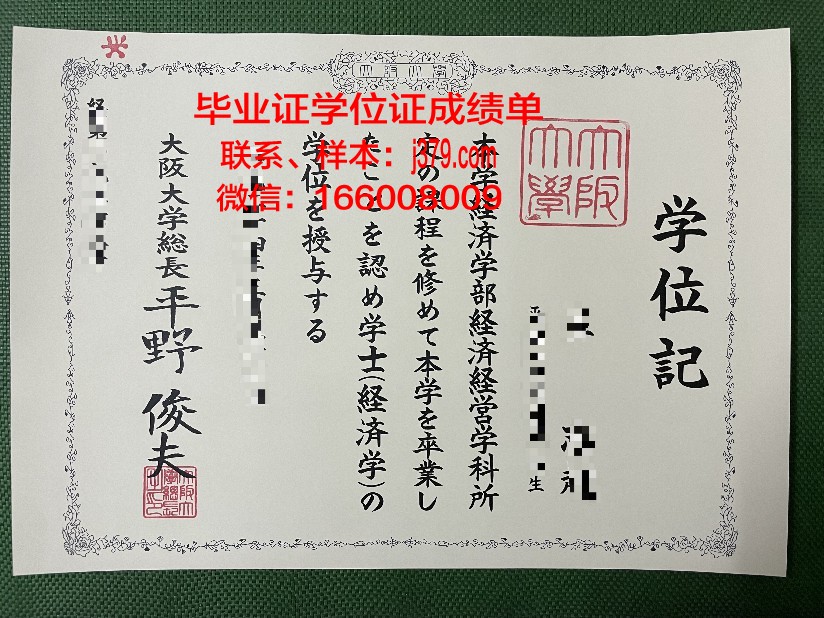 毕业证学位证成绩单
联系、样本：j379.com
微信：166008009
学位記
大阪大學
生
本学経済学部経済経営学科所
定の課程を修めて本学を卒業し
たことを認め学士(経済学)の
学位を授与する
大阪大学総長 平野 俊夫